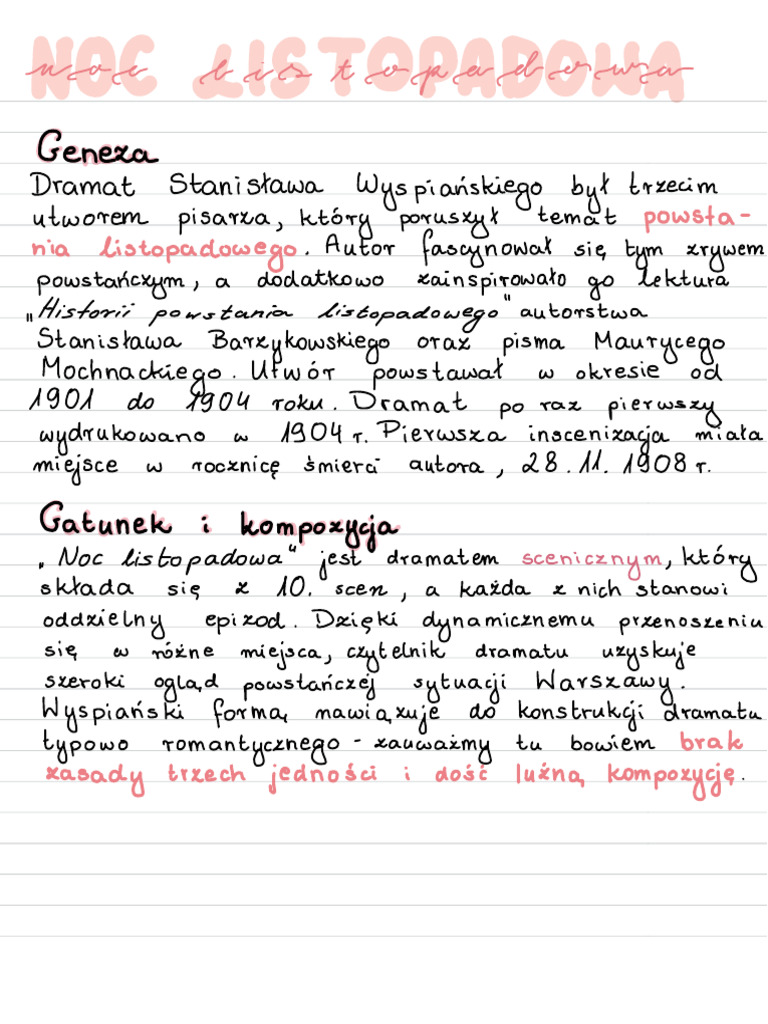 NOC LISTOPADOWA
noc listopadowa
Geneza
Dramat Stanisława Wyspiańskiego był trzecim
utworem pisarza, który poruszył temat powsta-
nia listopadowego. Autor fascynował się tym zrywem
powstańczym, a dodatkowo zainspirowało go lektura
„Historii powstania listopadowego" autorstwa
Stanisława Barzykowskiego oraz pisma Maurycego
Mochnackiego. Utwór powstawał w okresie od
1901 do 1904 roku. Dramat po raz pierwszy
wydrukowano w 1904 r. Pierwsza inscenizacja miała
miejsce w rocznicę śmierci autora, 28.11.1908 r.
Gatunek i kompozycja
„Noc listopadowa" jest dramatem scenicznym, który
składa się z 10. scen, a każda z nich stanowi
oddzielny epizod. Dzięki dynamicznemu przenoszeniu
się w różne miejsca, czytelnik dramatu uzyskuje
szeroki ogląd powstańczej sytuacji Warszawy.
Wyspiański formą nawiązuje do konstrukcji dramatu
typowo romantycznego - zauważmy tu bowiem brak
zasady trzech jedności i dość luźną kompozycję.